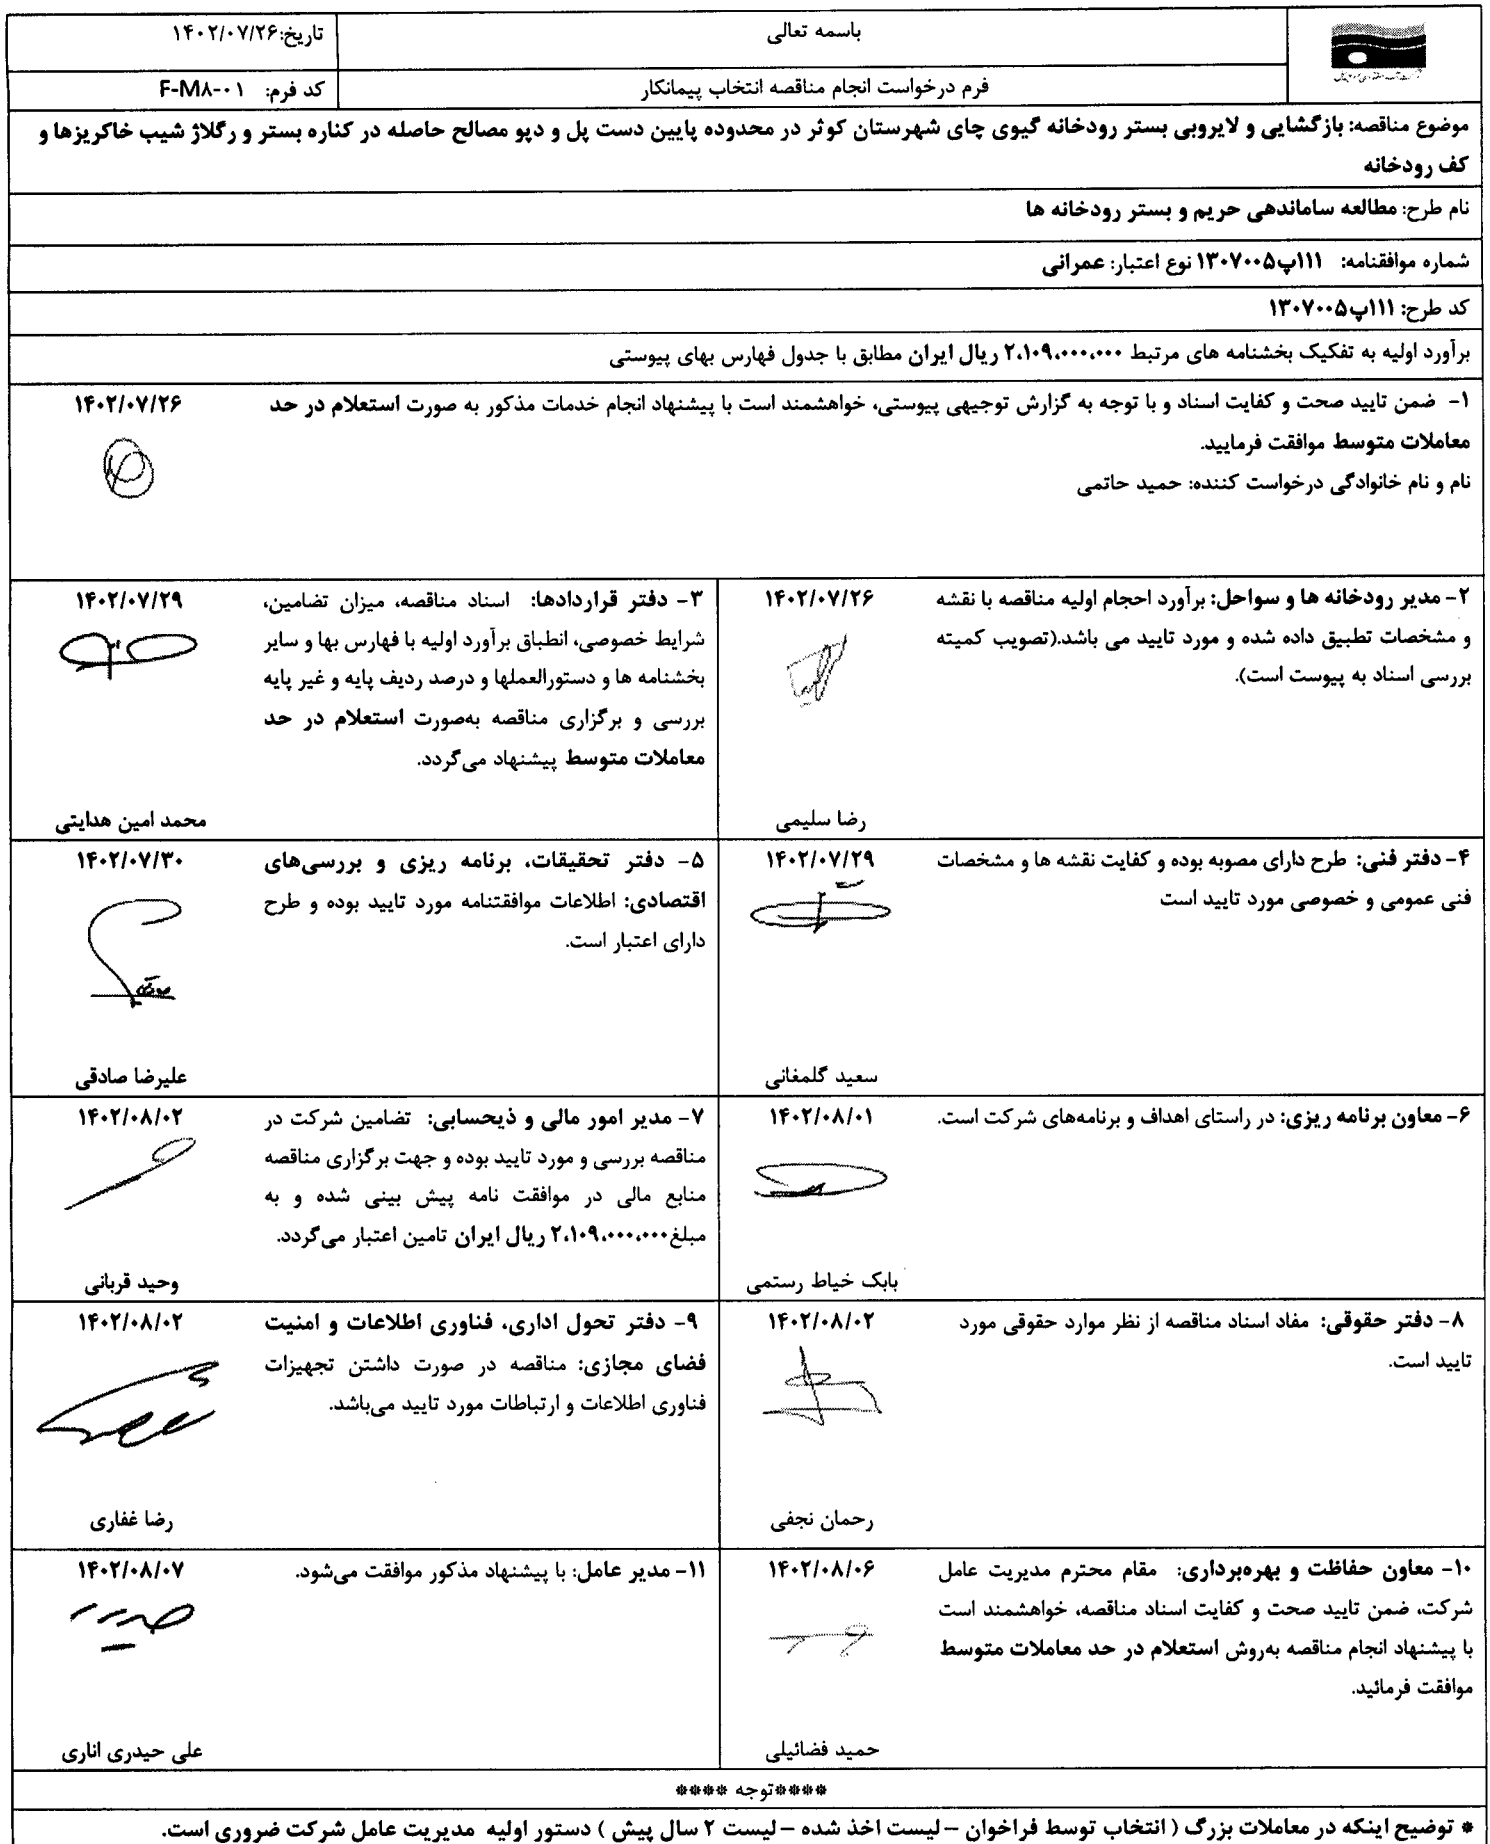 باسمه تعالی
تاریخ:۱۴۰۲/۰۷/۲۶
فرم درخواست انجام مناقصه انتخاب پیمانکار
کد فرم: F-M۸-۰۱
موضوع مناقصه: بازگشایی و لایروبی بستر رودخانه گیوی چای شهرستان کوثر در محدوده پایین دست پل و دپو مصالح حاصله در کناره بستر و رگلاژ شیب خاکریزها و
کف رودخانه
نام طرح: مطالعه ساماندهی حریم و بستر رودخانه ها
شماره موافقنامه: ۱۱۱پ۱۳۰۷۰۰۵ نوع اعتبار: عمرانی
کد طرح: ۱۱۱پ۱۳۰۷۰۰۵
برآورد اولیه به تفکیک بخشنامه های مرتبط ۲،۱۰۹،۰۰۰،۰۰۰ ریال ایران مطابق با جدول فهارس بهای پیوستی
۱- ضمن تایید صحت و کفایت اسناد و با توجه به گزارش توجیهی پیوستی، خواهشمند است با پیشنهاد انجام خدمات مذکور به صورت استعلام در حد
معاملات متوسط موافقت فرمایید.
۱۴۰۲/۰۷/۲۶
نام و نام خانوادگی درخواست کننده: حمید حاتمی
۲- مدیر رودخانه ها و سواحل: برآورد احجام اولیه مناقصه با نقشه
و مشخصات تطبیق داده شده و مورد تایید می باشد.(تصویب کمیته
بررسی اسناد به پیوست است).
۱۴۰۲/۰۷/۲۶
رضا سلیمی
۳- دفتر قراردادها: اسناد مناقصه، میزان تضامین،
شرایط خصوصی، انطباق برآورد اولیه با فهارس بها و سایر
بخشنامه ها و دستورالعملها و درصد ردیف پایه و غیر پایه
بررسی و برگزاری مناقصه به‌صورت استعلام در حد
معاملات متوسط پیشنهاد می‌گردد.
۱۴۰۲/۰۷/۲۹
محمد امین هدایتی
۴- دفتر فنی: طرح دارای مصوبه بوده و کفایت نقشه ها و مشخصات
فنی عمومی و خصوصی مورد تایید است
۱۴۰۲/۰۷/۲۹
سعید گلمغانی
۵- دفتر تحقیقات، برنامه ریزی و بررسی‌های
اقتصادی: اطلاعات موافقتنامه مورد تایید بوده و طرح
دارای اعتبار است.
۱۴۰۲/۰۷/۳۰
علیرضا صادقی
۶- معاون برنامه ریزی: در راستای اهداف و برنامه‌های شرکت است.
۱۴۰۲/۰۸/۰۱
بابک خیاط رستمی
۷- مدیر امور مالی و ذیحسابی: تضامین شرکت در
مناقصه بررسی و مورد تایید بوده و جهت برگزاری مناقصه
منابع مالی در موافقت نامه پیش بینی شده و به
مبلغ۲،۱۰۹،۰۰۰،۰۰۰ ریال ایران تامین اعتبار می‌گردد.
۱۴۰۲/۰۸/۰۲
وحید قربانی
۸- دفتر حقوقی: مفاد اسناد مناقصه از نظر موارد حقوقی مورد
تایید است.
۱۴۰۲/۰۸/۰۲
رحمان نجفی
۹- دفتر تحول اداری، فناوری اطلاعات و امنیت
فضای مجازی: مناقصه در صورت داشتن تجهیزات
فناوری اطلاعات و ارتباطات مورد تایید می‌باشد.
۱۴۰۲/۰۸/۰۲
رضا غفاری
۱۰- معاون حفاظت و بهره‌برداری: مقام محترم مدیریت عامل
شرکت، ضمن تایید صحت و کفایت اسناد مناقصه، خواهشمند است
با پیشنهاد انجام مناقصه به‌روش استعلام در حد معاملات متوسط
موافقت فرمائید.
۱۴۰۲/۰۸/۰۶
حمید فضائیلی
۱۱- مدیر عامل: با پیشنهاد مذکور موافقت می‌شود.
۱۴۰۲/۰۸/۰۷
علی حیدری اناری
****توجه ****
* توضیح اینکه در معاملات بزرگ ( انتخاب توسط فراخوان – لیست اخذ شده – لیست ۲ سال پیش ) دستور اولیه مدیریت عامل شرکت ضروری است.